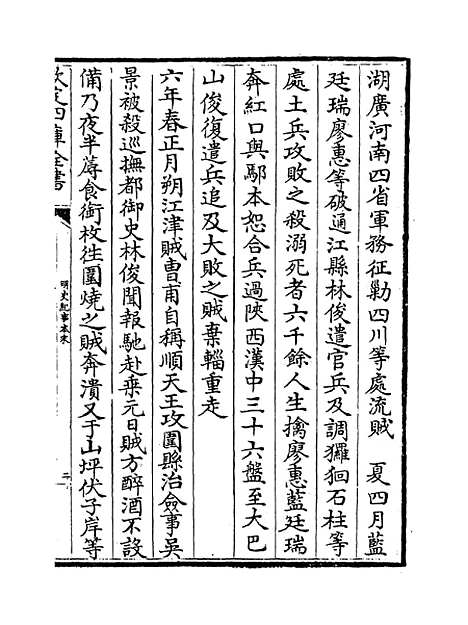 湖廣河南四省軍務征勦四川等處流賊　夏四月藍
廷瑞廖惠等破通江縣林俊遣官兵及調玀狪石柱等
處土兵攻敗之殺溺死者六千餘人生擒廖惠藍廷瑞
奔紅口與鄢本恕合兵過陝西漢中三十六盤至大巴
山俊復遣兵追及大敗之賊棄輜重走
六年春正月朔江津賊曹甫自稱順天王攻圍縣治僉事吳
景被殺巡撫都御史林俊聞報馳赴乗元日賊方醉酒不設
備乃夜半蓐食銜枚徃圍燒之賊奔潰又于山坪伏子岸等
欽定四庫全書
明史紀事本末